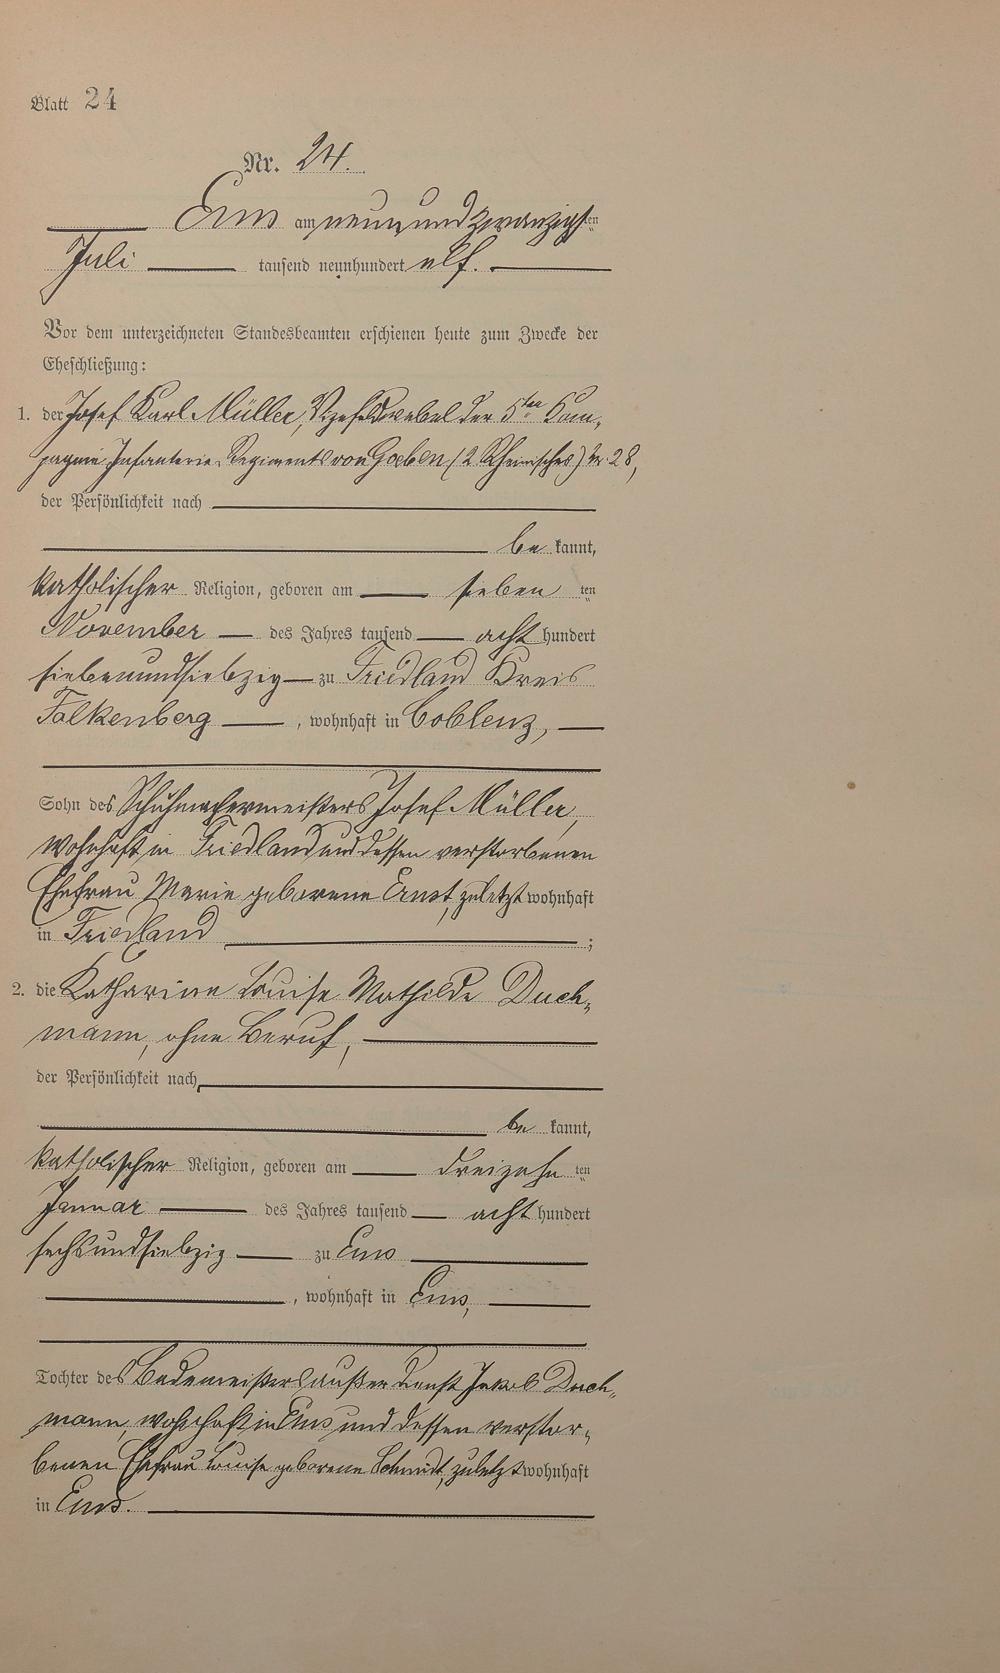 Blatt 24
Nr. 24.
Ems am neunundzwanzigsten
Juli tausend neunhundert elf.
Vor dem unterzeichneten Standesbeamten erschienen heute zum Zwecke der
Eheschließung:
1. der Josef Karl Müller, Vizefeldwebel der 5ten Kom-
pagnie Infanterie-Regiments von Goeben (2 Rheinisches) Nr. 28,
der Persönlichkeit nach
be kannt,
katholischer Religion, geboren am sieben ten
November des Jahres tausend acht hundert
siebenundsiebzig zu Friedland Kreis
Falkenberg, wohnhaft in Coblenz,
Sohn des Schuhmachermeisters Josef Müller,
wohnhaft in Friedland und dessen verstorbenen
Ehefrau Marie geborene Ernst, zuletzt wohnhaft
in Friedland ;
2. die Katharina Louise Mathilde Duch-
mann, ohne Beruf,
der Persönlichkeit nach
be kannt,
katholischer Religion, geboren am dreizehn ten
Januar des Jahres tausend acht hundert
sechsundsiebzig zu Ems
, wohnhaft in Ems,
Tochter des Bademeisters außer Dienst Jakob Duch-
mann, wohnhaft in Ems und dessen verstor-
benen Ehefrau Louise geborene Schmidt, zuletzt wohnhaft
in Ems.